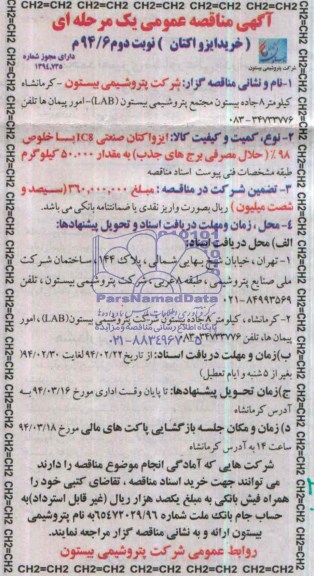 آگهی مناقصه عمومی یک مرحله ای
(خرید ایزواکتان) نوبت دوم ۹۴/۶
شرکت پتروشیمی بیستون
دارای مجوز شماره
۱۳۹۴,۷۳۵
۱-نام و نشانی مناقصه گزار: شرکت پتروشیمی بیستون - کرمانشاه
کیلومتر ۸ جاده بیستون مجتمع پتروشیمی بیستون (LAB)- امور پیمان ها تلفن
۳۴۷۳۳۷۷۶-۰۸۳
۲- نوع، کمیت و کیفیت کالا: ایزواکتان صنعتی IC8 با خلوص
۹۸٪ (حلال مصرفی برج های جذب) به مقدار ۵۰،۰۰۰ کیلوگرم
طبقه مشخصات فنی پیوست اسناد مناقصه
۳- تضمین شرکت در مناقصه: مبلغ ۳۶۰,۰۰۰,۰۰۰ (سیصد و
شصت میلیون) ریال بصورت واریز نقدی یا ضمانتنامه بانکی می باشد.
۴- محل، زمان ومهلت دریافت اسناد و تحویل پیشنهادها:
الف) محل دریافت اسناد:
۱- تهران، خیابان شیخ بهایی شمالی، پلاک ۱۴۴، ساختمان شرکت
ملی صنایع پتروشیمی، طبقه ۸ غربی، شرکت پتروشیمی بیستون، تلفن
۸۴۹۹۳۵۶۹-۰۲۱
۲- کرمانشاه، کیلومتر ۸ جاده بیستون شرکت پتروشیمی بیستون(LAB)، امور
پیمان ها، تلفن ۳۴۷۳۳۷۷۶-۰۸۳
ب)زمان و مهلت دریافت اسناد: از تاریخ ۹۴/۰۲/۲۲ لغایت ۹۴/۰۲/۳۰(
بغیر از ۵ شنبه و ایام تعطیل)
ج)زمان تحویل پیشنهادها: تا پایان وقت اداری مورخ ۹۴/۰۳/۱۶ به
آدرس کرمانشاه
د) زمان و مکان جلسه بازگشایی پاکت های مالی مورخ ۹۴/۰۳/۱۸
ساعت ۱۴ به آدرس کرمانشاه
شرکت هایی که آمادگی انجام موضوع مناقصه را دارند
می توانند جهت خرید اسناد مناقصه، تقاضای کتبی خود را
همراه فیش بانکی به مبلغ یکصد هزار ریال (غیر قابل استرداد)به
حساب جام بانک ملت شماره ۶۵۴۷۲۰۲۹/۹۶به نام پتروشیمی
بیستون ارائه و به نشانی مناقصه گزار مراجعه نمایند.
روابط عمومی شرکت پتروشیمی بیستون
CH2=CH2 CH2=CH2 CH2=CH2 CH2=CH2 CH2=CH2
ParsNamadData
پایگاه اطلاع رسانی مناقصه و مزایده
۰۲۱-۸۸۳۴۹۶۷۰-۵